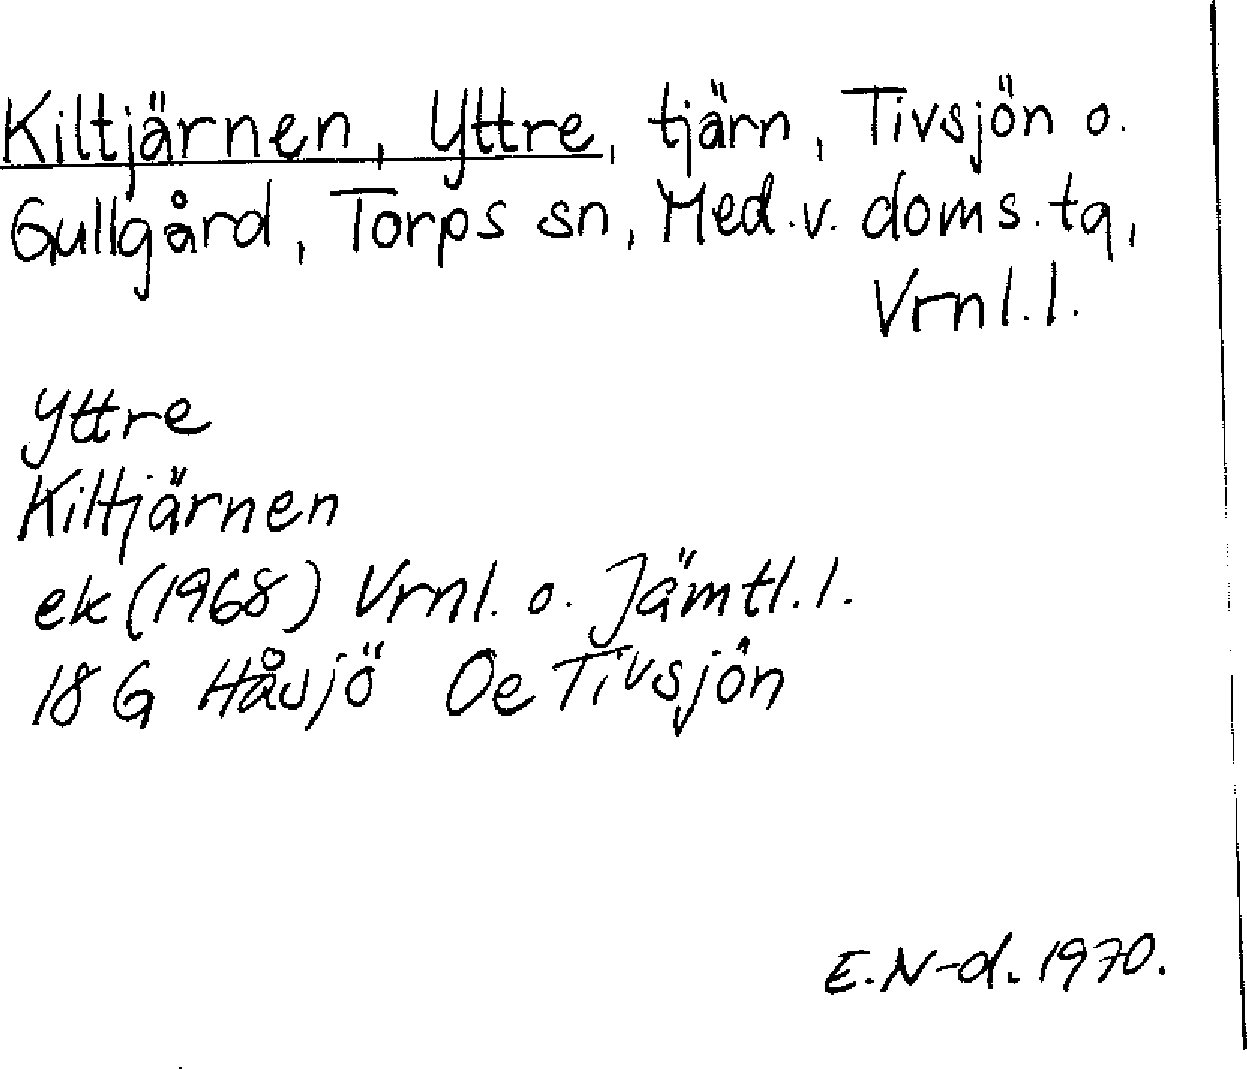 Kiltjärnen, Yttre, tjärn, Tivsjön o.
Gullgård, Torps sn, Med.v. doms.tg,
Vrnl.l.
Yttre
Kiltjärnen
ek (1968) Vrnl. o. Jämtl.l.
18 G Håsjö Oe Tivsjön
E.N-d. 1970.